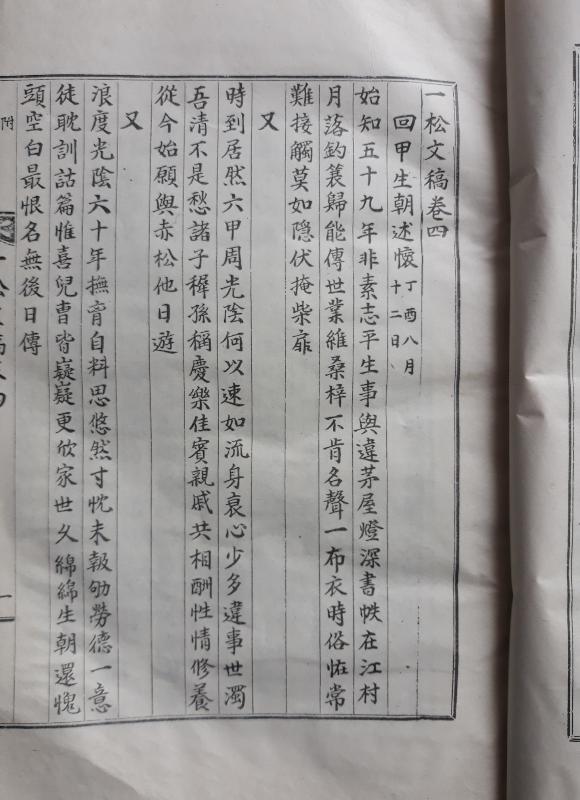 一松文稿卷四
回甲生朝述懷 丁酉八月
十二日
始知五十九年非素志平生事與違茅屋燈深書帙在江村
月落釣蓑歸能傳世業維桑梓不肯名聲一布衣時俗恠常
難接觸莫如隱伏掩柴扉
又
時到居然六甲周光陰何以速如流身衰心少多違事世濁
吾清不是愁諸子稺孫稱慶樂佳賓親戚共相酬性情修養
從今始願與赤松他日遊
又
浪度光陰六十年撫膺自料思悠然寸忱未報劬勞德一意
徒耽訓詁篇惟喜兒曹皆嶷嶷更欣家世久綿綿生朝還愧
頭空白最恨名無後日傳
附